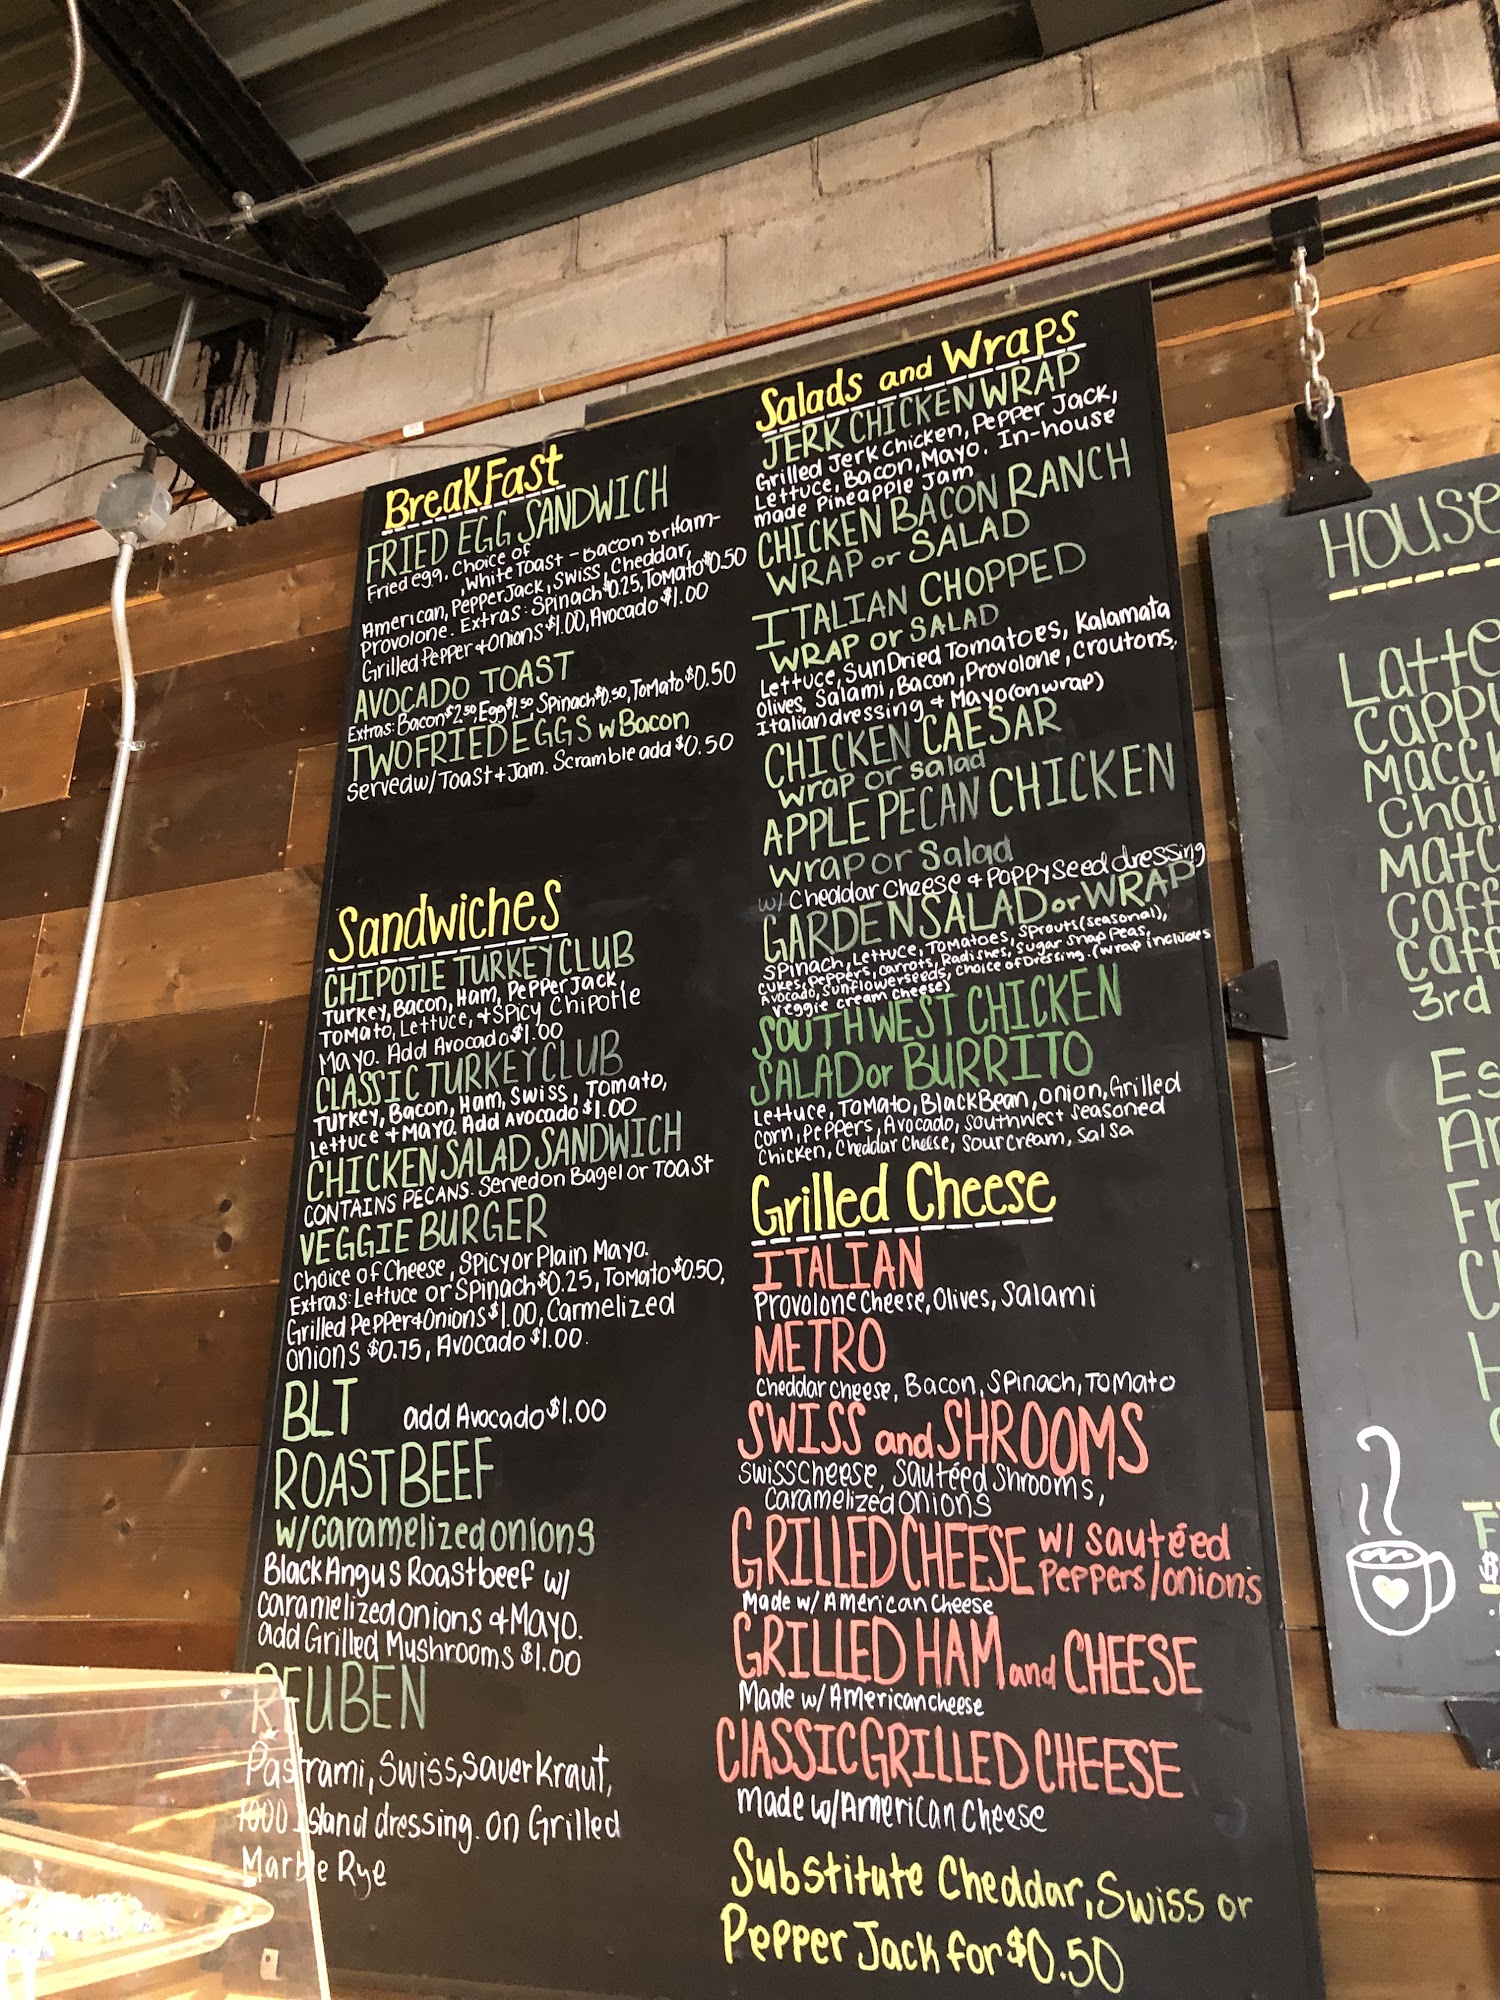 BreakFast
FRIED EGG SANDWICH
Fried egg, Choice of
, White Toast - Bacon or Ham -
American, Pepper Jack, Swiss, Cheddar,
Provolone. Extras: Spinach $0.25, Tomato $0.50
Grilled Pepper + Onions $1.00, Avocado $1.00
AVOCADO TOAST
Extras: Bacon $2.50, Egg $1.50 Spinach $0.50, Tomato $0.50
TWO FRIED EGGS w Bacon
served w/ Toast + Jam. Scramble add $0.50
Sandwiches
CHIPOTLE TURKEY CLUB
Turkey, Bacon, Ham, Pepper Jack,
Tomato, Lettuce, + Spicy Chipotle
Mayo. Add Avocado $1.00
CLASSIC TURKEY CLUB
Turkey, Bacon, Ham, Swiss, Tomato,
Lettuce + Mayo. Add Avocado $1.00
CHICKEN SALAD SANDWICH
CONTAINS PECANS. Served on Bagel or Toast
VEGGIE BURGER
Choice of Cheese, Spicy or Plain Mayo.
Extras: Lettuce or Spinach $0.25, Tomato $0.50,
Grilled Pepper + Onions $1.00, Carmelized
Onions $0.75, Avocado $1.00.
BLT add Avocado $1.00
ROAST BEEF
w/ caramelized onions
Black Angus Roast beef w/
caramelized onions + Mayo.
add Grilled Mushrooms $1.00
REUBEN
Pastrami, Swiss, Sauer Kraut,
1000 Island dressing. on Grilled
Marble Rye
Salads and Wraps
JERK CHICKEN WRAP
Grilled Jerk Chicken, Pepper Jack,
Lettuce, Bacon, Mayo. In-house
made Pineapple Jam
CHICKEN BACON RANCH
WRAP or SALAD
ITALIAN CHOPPED
WRAP or SALAD
Lettuce, Sun Dried Tomatoes, Kalamata
Olives, Salami, Bacon, Provolone, Croutons,
Italian dressing + Mayo (on wrap)
CHICKEN CAESAR
wrap or salad
APPLE PECAN CHICKEN
wrap or Salad
w/ Cheddar Cheese + Poppy Seed dressing
GARDEN SALAD or WRAP
Spinach, Lettuce, Tomatoes, Sprouts (seasonal),
Cukes, Peppers, Carrots, Radishes, Sugar Snap Peas,
Avocado, Sunflower seeds, Choice of Dressing. (wrap includes
veggie cream cheese)
SOUTHWEST CHICKEN
SALAD or BURRITO
Lettuce, Tomato, Black Bean, Onion, Grilled
Corn, Peppers, Avocado, Southwest seasoned
Chicken, Cheddar Cheese, Sour cream, Salsa
Grilled Cheese
ITALIAN
Provolone Cheese, Olives, Salami
METRO
Cheddar cheese, Bacon, Spinach, Tomato
SWISS and SHROOMS
Swiss Cheese, Sautéed Shrooms,
Caramelized Onions
GRILLED CHEESE w/ Sautéed
Peppers/onions
Made w/ American Cheese
GRILLED HAM and CHEESE
Made w/ American cheese
CLASSIC GRILLED CHEESE
made w/ American Cheese
Substitute Cheddar, Swiss or
Pepper Jack for $0.50
HOUSE
Latte
Cappu
Macc
Chai
Matc
Caff
Caff
3rd